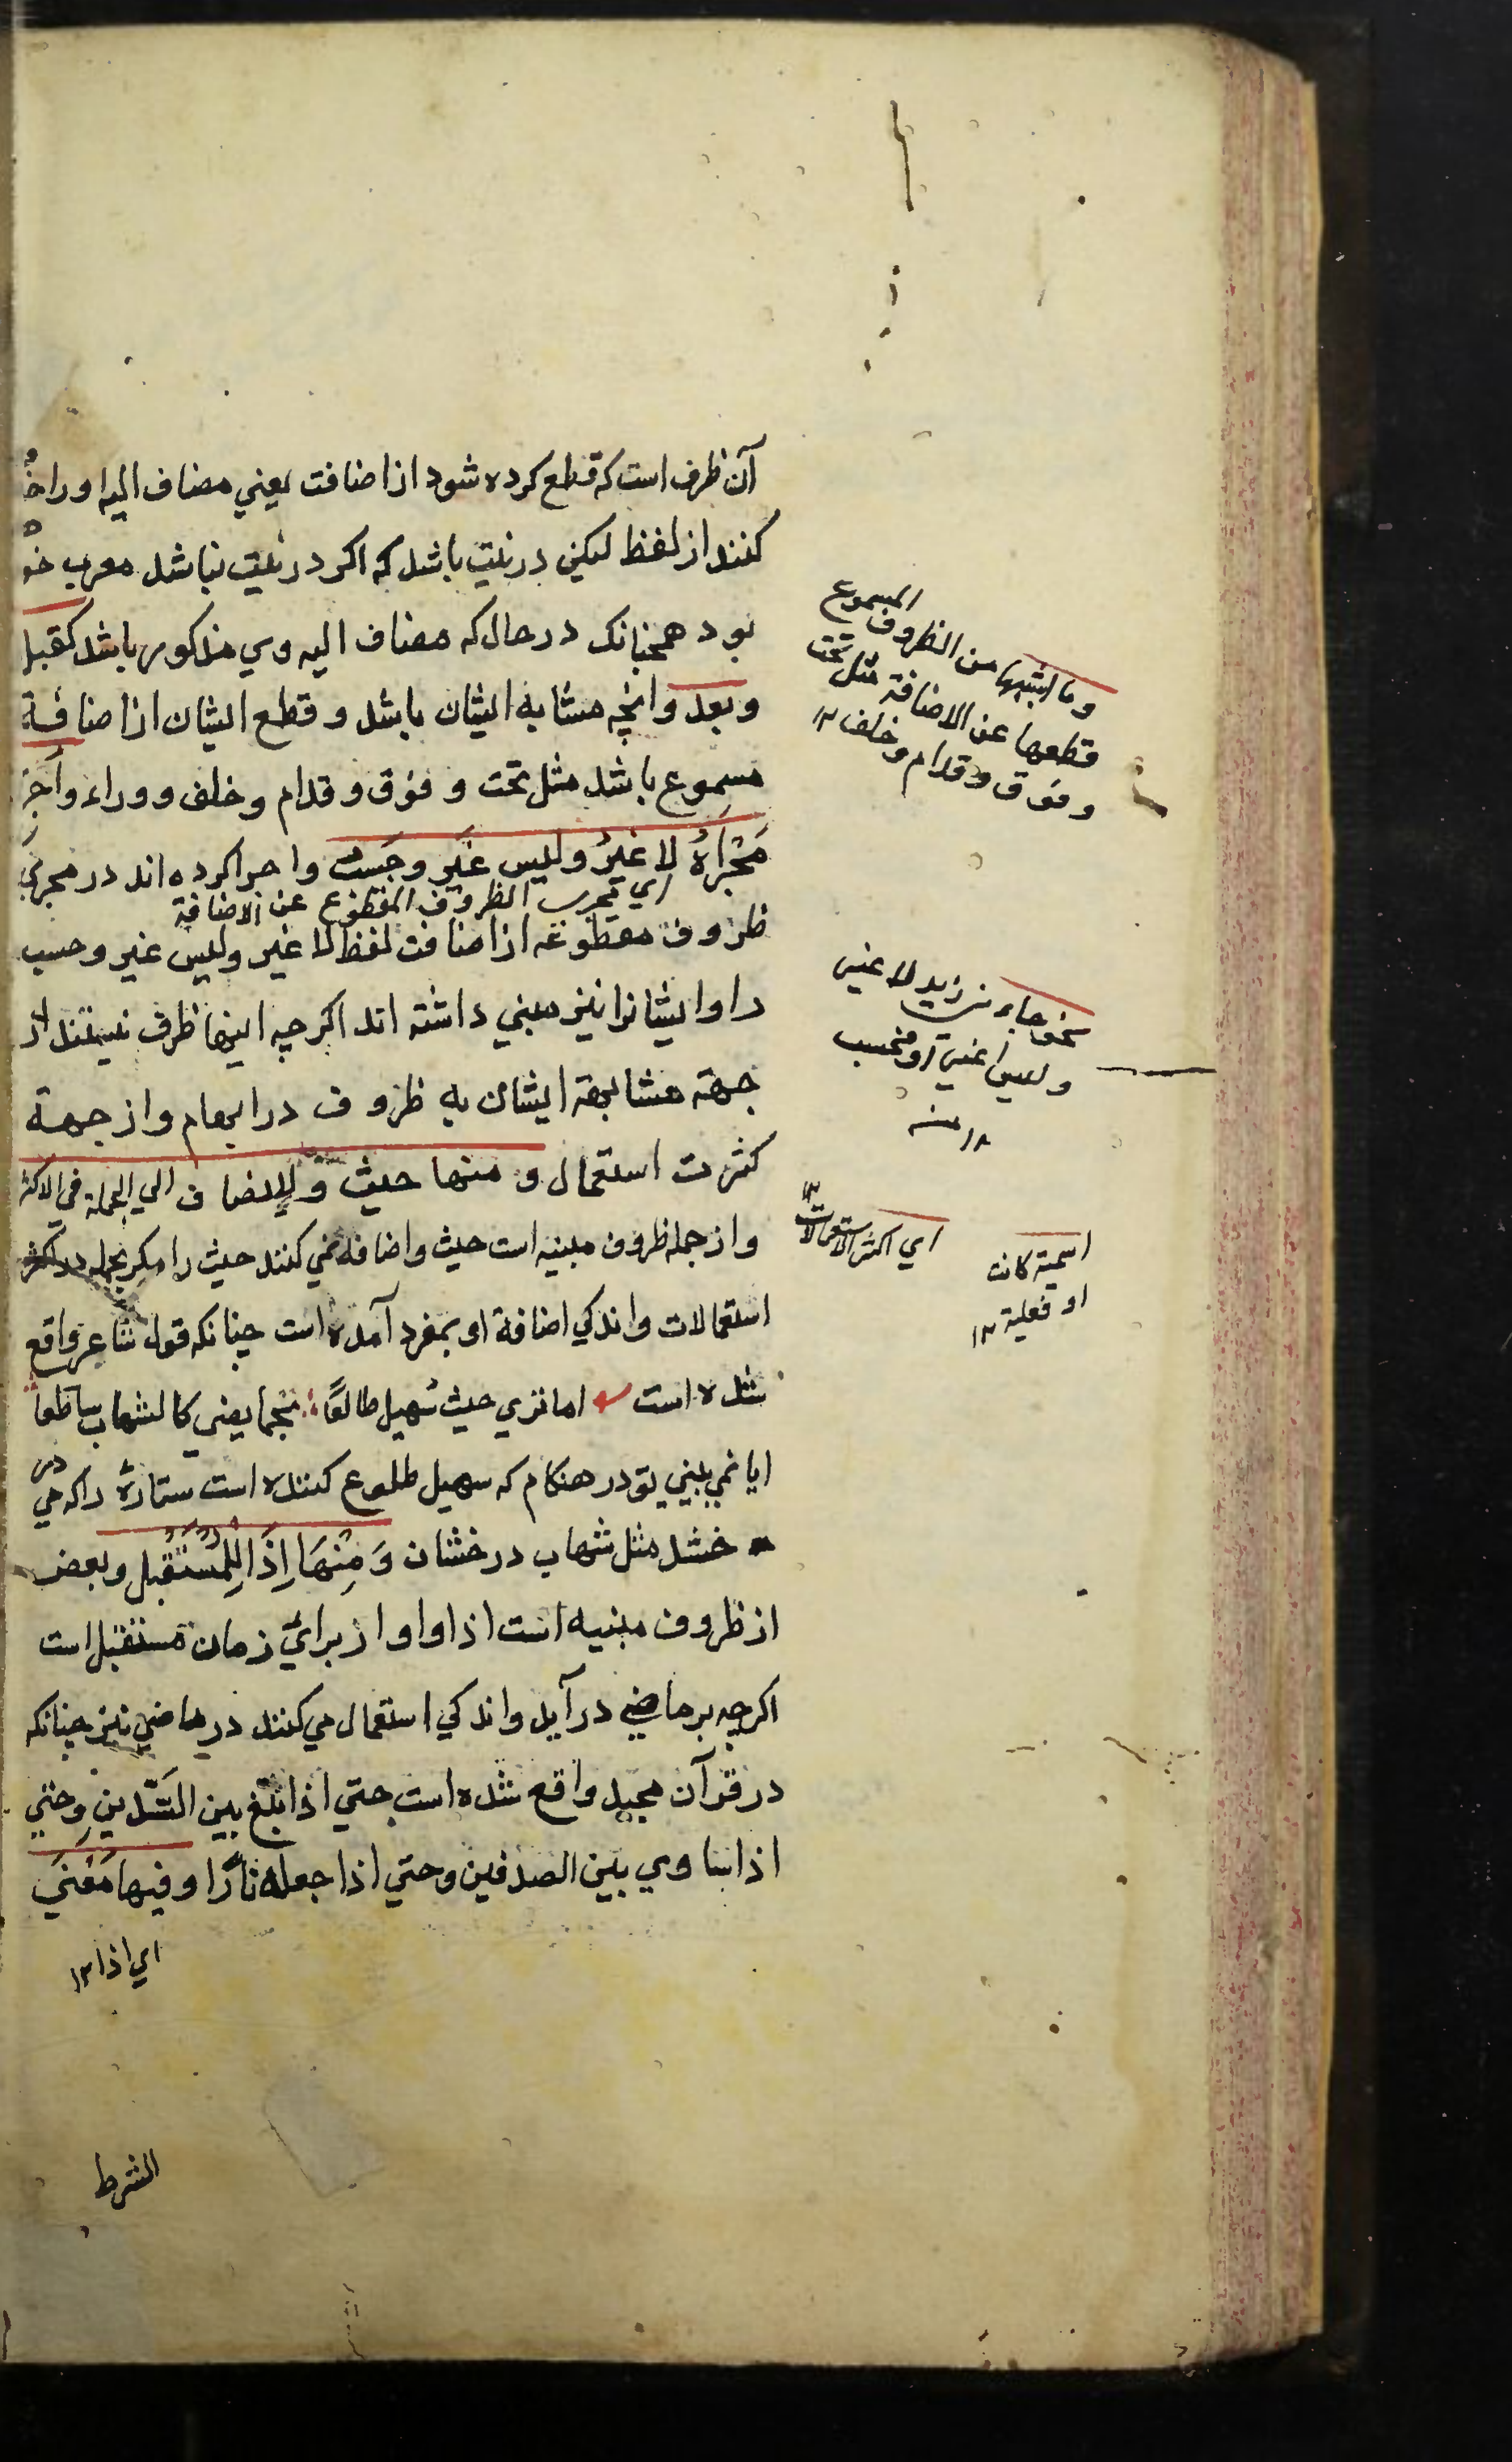 آن ظرف است که قطع کرده شود از اضافت یعنی مضاف الیه او را حذ
کنند از لفظ لیکن در نیت باشد که اکر در نیت نباشد معرب خو
بود همچنانک در حال که مضاف الیه وی مذکور باشد کقبل
وبعد وانچه مشابه ایشان باشد و قطع ایشان از اضافة
مسموع باشد مثل تحت و فوق و قدام و خلف و وراء واخر
مَجْرَاهُ لا غیرُ ولیس غیر وحَسب واجرا کرده اند در مجرای
ای مجری الظروف المقطوع عن الاضافة
ظروف مقطوعه از اضافت لفظ لا غیر ولیس غیر وحسب
را وایشانرا نیز مبنی داشته اند اکرچه اینها ظرف نیستند از
جهة مشابهة ایشان به ظروف در ابهام واز جهة
کثرت استعمال و منها حیث ولا یضاف الی الجملة فی الاکثر
واز جمله ظروف مبنیه است حیث واضافه نمی کنند حیث را مکر بجمله در اکثر
استعمالات واندکی اضافة او بمفرد آمده است چنانکه قول شاعر واقع
شده است اما تری حیث سهیل طالعًا نجما یضی کالشهاب ساطعا
ایا نمی بینی تو در هنکام که سهیل طلوع کننده است ستارهٔ را که می در
خشد مثل شهاب درخشان وَمِنْهَا اِذَا لِلْمُسْتَقْبِل وبعض
از ظروف مبنیه است اذا واو از برای زمان مستقبل است
اکرچه بر ماضی در آید واندکی استعمال می کنند در ماضی نیز چنانکه
در قرآن مجید واقع شده است حتی اذا بلغ بین السَّدین وحتی
اذا ساوی بین الصدفین وحتی اذا جعله نارًا وفیها مَعْنَی
ای اذا ۱۲
الشرط
وما اشبهها من الظروف المسموع
قطعها عن الاضافة مثل تحت
وفوق وقدام وخلف ۱۲
نحو جاء نی زید لا غیر
ولیس غیر او فحسب
۱۲ منه
ای اکثر الاستعمالات ۱۲
اسمیة کانت
او فعلیة ۱۲